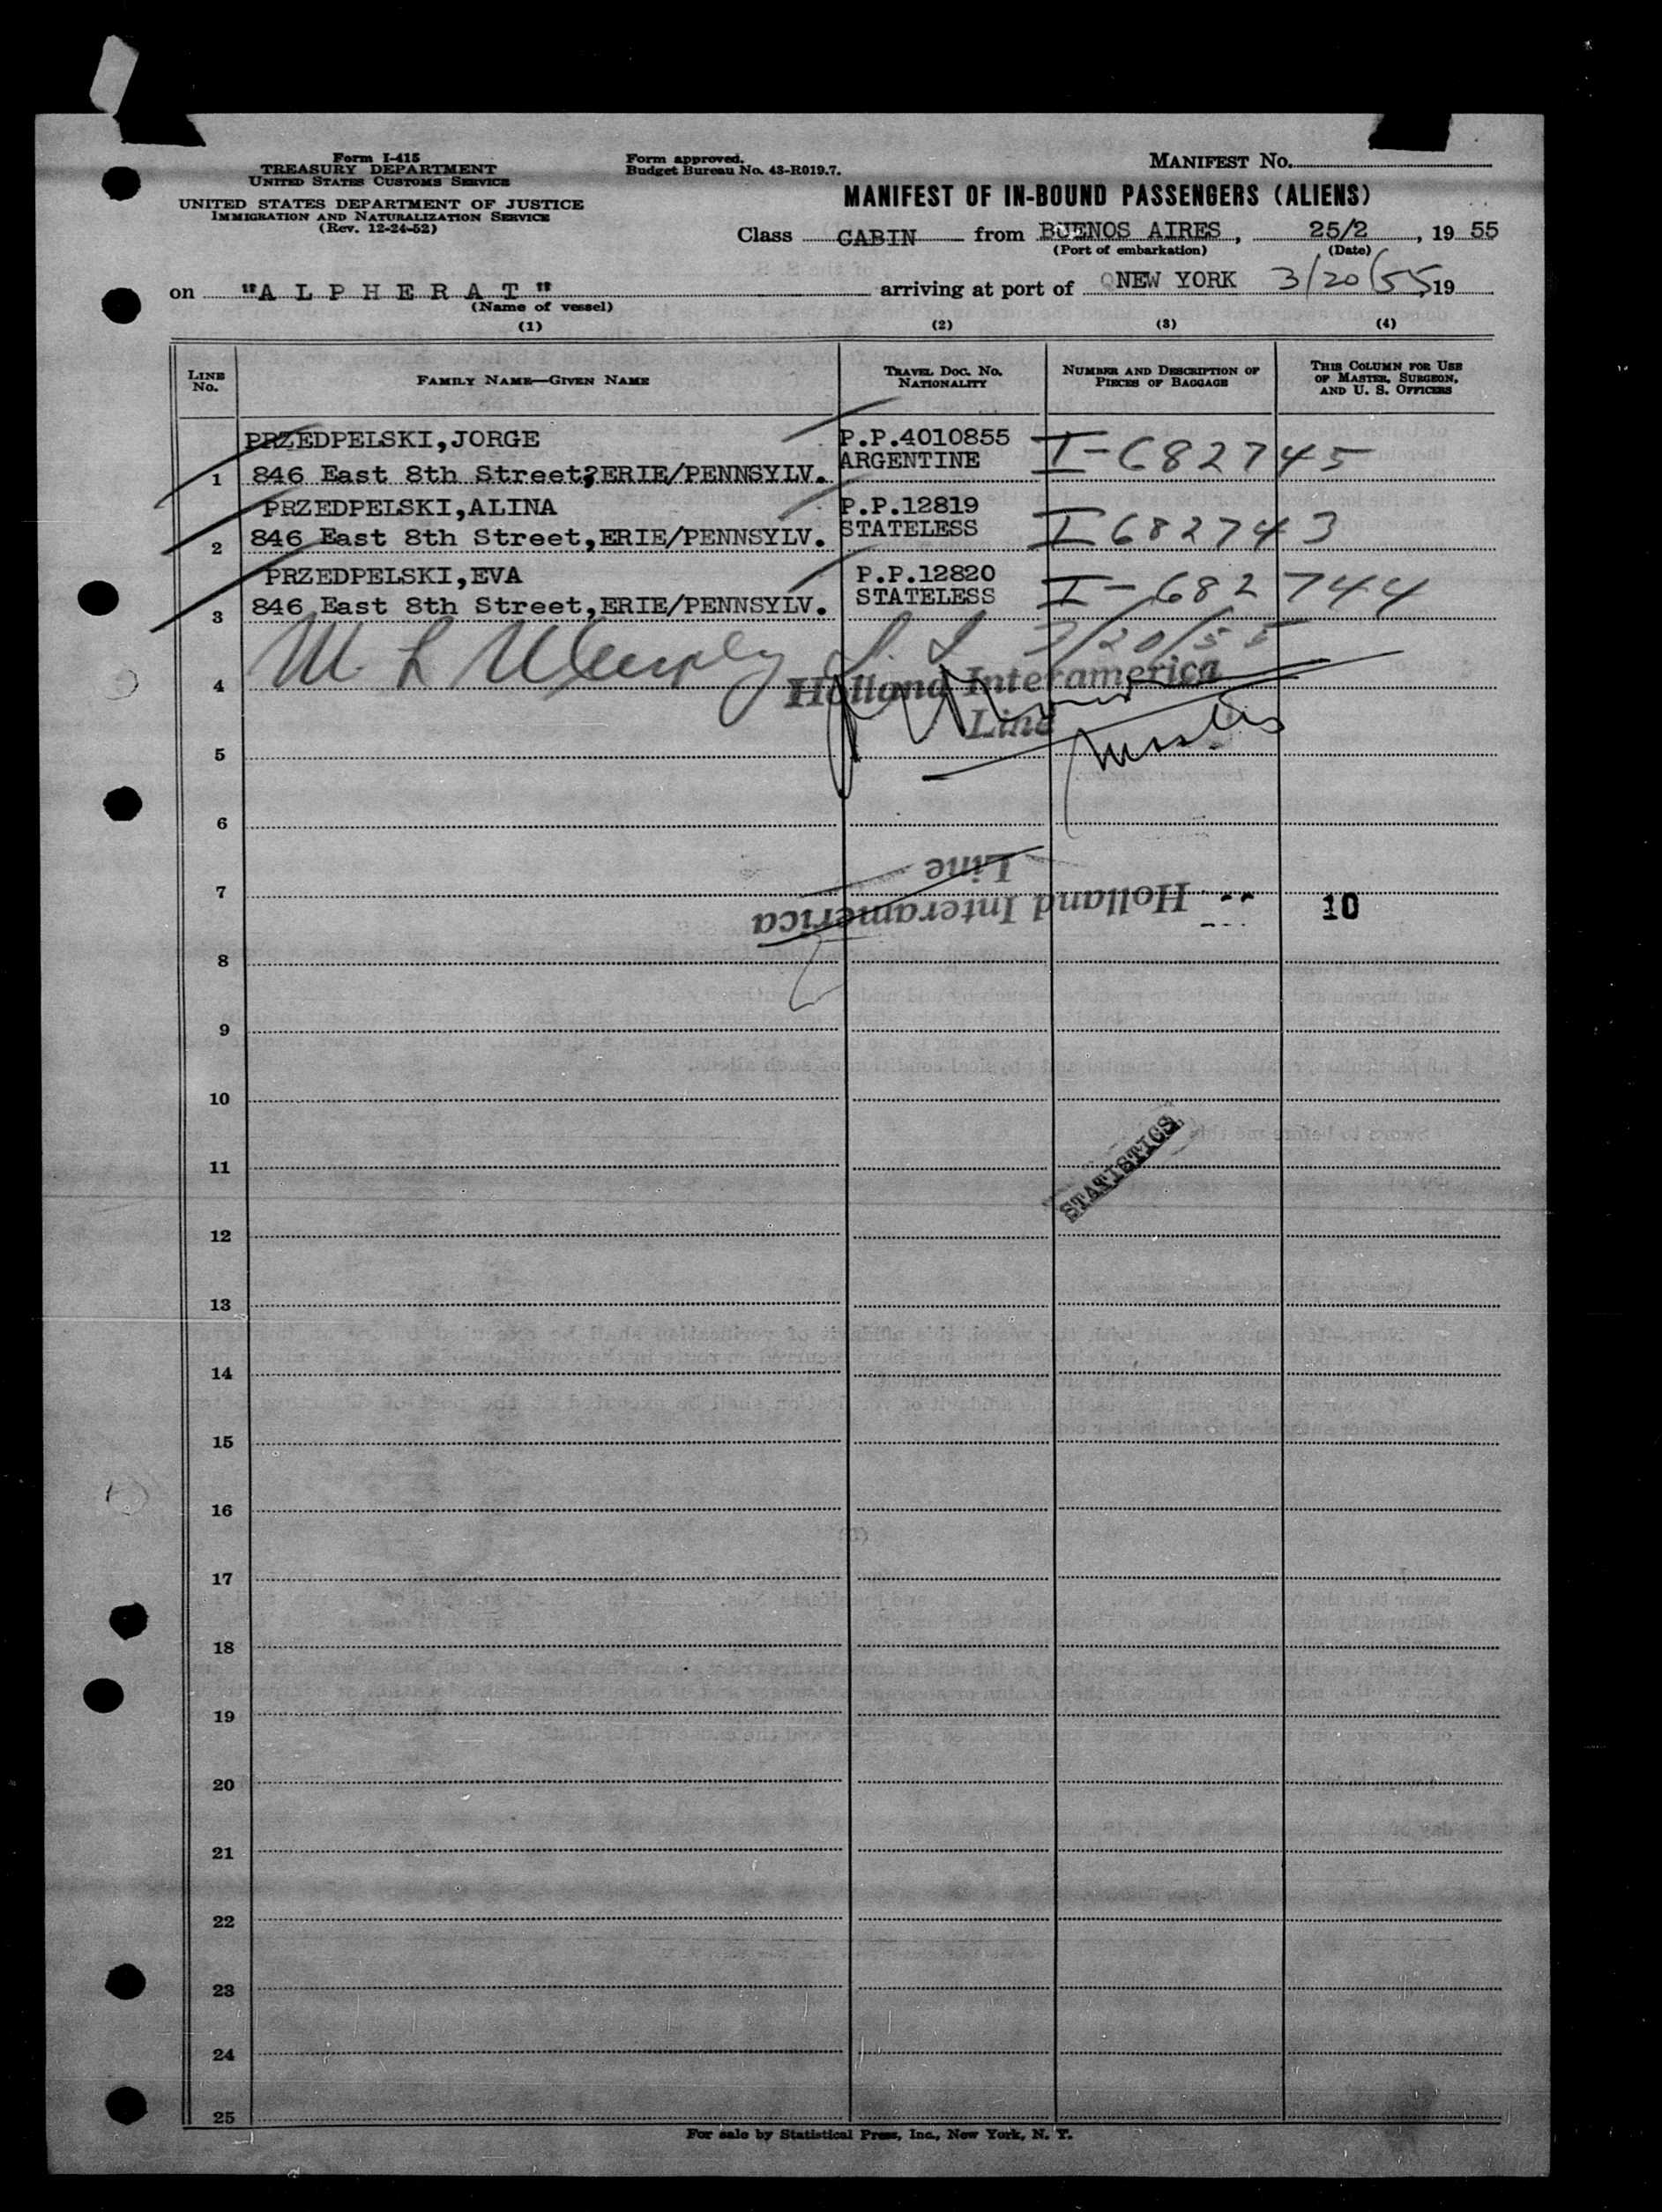 Form I-415
TREASURY DEPARTMENT
UNITED STATES CUSTOMS SERVICE
UNITED STATES DEPARTMENT OF JUSTICE
IMMIGRATION AND NATURALIZATION SERVICE
(Rev. 12-24-52)
Form approved.
Budget Bureau No. 43-R019.7.
MANIFEST NO.
MANIFEST OF IN-BOUND PASSENGERS (ALIENS)
Class CABIN from BUENOS AIRES, 25/2, 19 55
(Port of embarkation) (Date)
on "ALPHERAT" arriving at port of NEW YORK 3/20/55, 19
(Name of vessel)
(1) (2) (3) (4)
LINE No. FAMILY NAME—GIVEN NAME TRAVEL DOC. NO. NATIONALITY NUMBER AND DESCRIPTION OF PIECES OF BAGGAGE THIS COLUMN FOR USE OF MASTER, SURGEON, AND U. S. OFFICERS
PRZEDPELSKI,JORGE P.P.4010855 I-682745
1 846 East 8th Street,ERIE/PENNSYLV. ARGENTINE
PRZEDPELSKI,ALINA P.P.12819 I 682743
2 846 East 8th Street,ERIE/PENNSYLV. STATELESS
PRZEDPELSKI,EVA P.P.12820 I-682744
3 846 East 8th Street,ERIE/PENNSYLV. STATELESS
3/20/55
4 Holland Interamerica
Line
5
6
Line
7 Holland Interamerica 10
8
9
10
11 STATISTICS
12
13
14
15
16
17
18
19
20
21
22
23
24
25
For sale by Statistical Press, Inc., New York, N. Y.